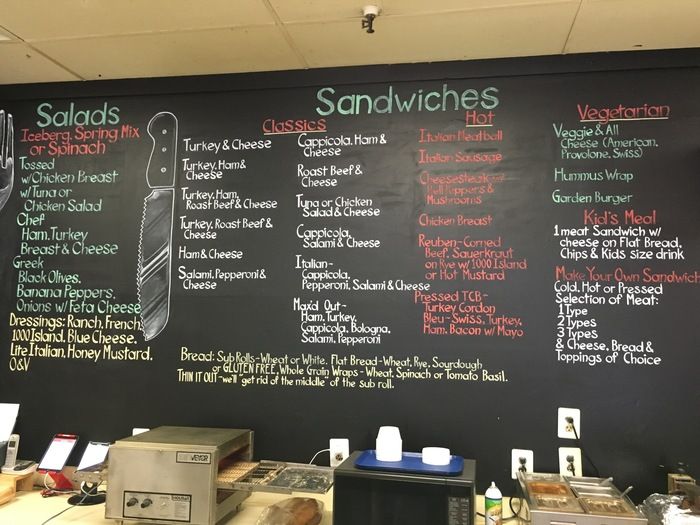 Salads
Iceberg, Spring Mix
or Spinach
Tossed
w/Chicken Breast
w/Tuna or
Chicken Salad
Chef
Ham, Turkey
Breast & Cheese
Greek
Black Olives,
Banana Peppers,
Onions w/Feta Cheese
Dressings: Ranch, French,
1000 Island, Blue Cheese,
Lite Italian, Honey Mustard,
O&V
Sandwiches
Classics
Turkey & Cheese
Turkey, Ham &
Cheese
Turkey, Ham,
Roast Beef & Cheese
Turkey, Roast Beef &
Cheese
Ham & Cheese
Salami, Pepperoni &
Cheese
Cappicola, Ham &
Cheese
Roast Beef &
Cheese
Tuna or Chicken
Salad & Cheese
Cappicola,
Salami & Cheese
Italian-
Cappicola,
Pepperoni, Salami & Cheese
Max'd Out-
Ham, Turkey,
Cappicola, Bologna,
Salami, Pepperoni
Hot
Italian Meatball
Italian Sausage
Cheesesteak w/
Bell Peppers &
Mushrooms
Chicken Breast
Reuben-Corned
Beef, Sauerkraut
on Rye w/1000 Island
or Hot Mustard
Pressed TCB-
Turkey Cordon
Bleu-Swiss, Turkey,
Ham, Bacon w/Mayo
Vegetarian
Veggie & All
Cheese (American,
Provolone, Swiss)
Hummus Wrap
Garden Burger
Kid's Meal
1 meat Sandwich w/
cheese on Flat Bread,
Chips & Kids size drink
Make Your Own Sandwich
Cold, Hot or Pressed
Selection of Meat:
1 Type
2 Types
3 Types
& Cheese, Bread &
Toppings of Choice
Bread: Sub Rolls-Wheat or White, Flat Bread-Wheat, Rye, Sourdough
or GLUTEN FREE, Whole Grain Wraps-Wheat, Spinach or Tomato Basil.
THIN IT OUT-we'll get rid of the "middle" of the sub roll.